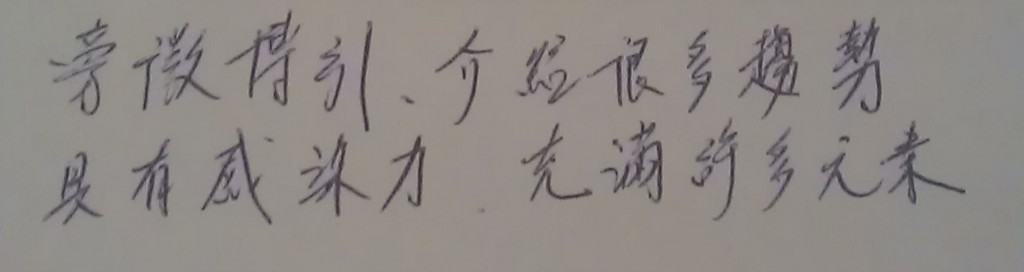 旁徵博引、介紹很多趨勢
具有感染力.充滿許多元素